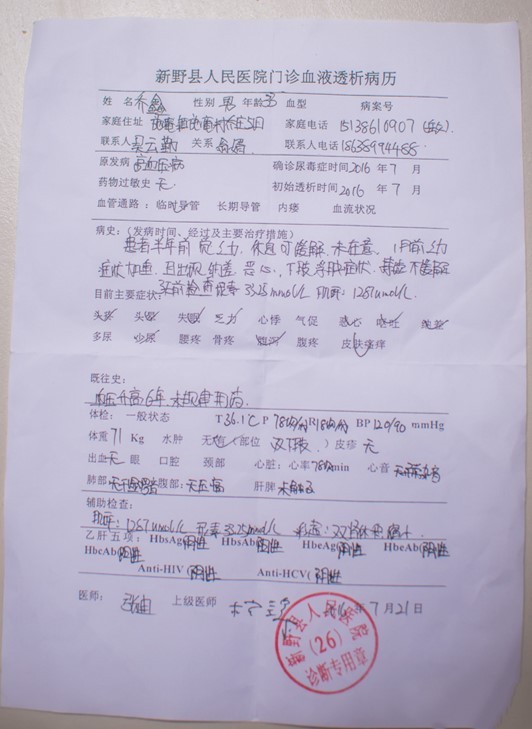 新野县人民医院门诊血液透析病历
姓 名 乔鑫 性别 男 年龄 血型 病案号
家庭住址 家庭电话 15138610907
联系人 吴云勤 关系 联系人电话 18638994488
原发病 高血压病 确诊尿毒症时间2016 年 7 月
药物过敏史 无 初始透析时间2016 年 7 月
血管通路：临时导管 长期导管 内瘘 血流状况
病史：（发病时间、经过及主要治疗措施）
患者半年前 乏力、休息可缓解,未在意、1月前乏力
症状加重,且出现纳差、恶心、下肢浮肿症状、 不缓解
尿素 33.25mmol/L 肌酐:1287umol/L.
目前主要症状：
头疼 头晕 失眠 乏力 心悸 气促 恶心 呕吐
多尿 少尿 腰疼 骨疼 腹泻 腹疼 皮肤瘙痒
既往史：
血压升高6年,未规律用药.
体检：一般状态 T36.1℃ P 78次/分 R18次/分 BP 120/90 mmHg
体重71 Kg 水肿 无 有（部位 双下肢 ）皮疹 无
出血 无 眼 口腔 颈部 心脏：心率78次/min 心音
肺部 腹部：无压痛 肝脾 未触及
辅助检查：
肌酐:1287umol/L 尿素33.25mmol/L
乙肝五项：HbsAg(阴性 HbsAb(阴性 HbeAg(阴性 HbeAb(阴性
HbcAb(阴性
Anti-HIV (阴性 Anti-HCV( 阴性
医师： 上级医师 年 7 月 21 日
新野县人民医院
(26)
诊断专用章